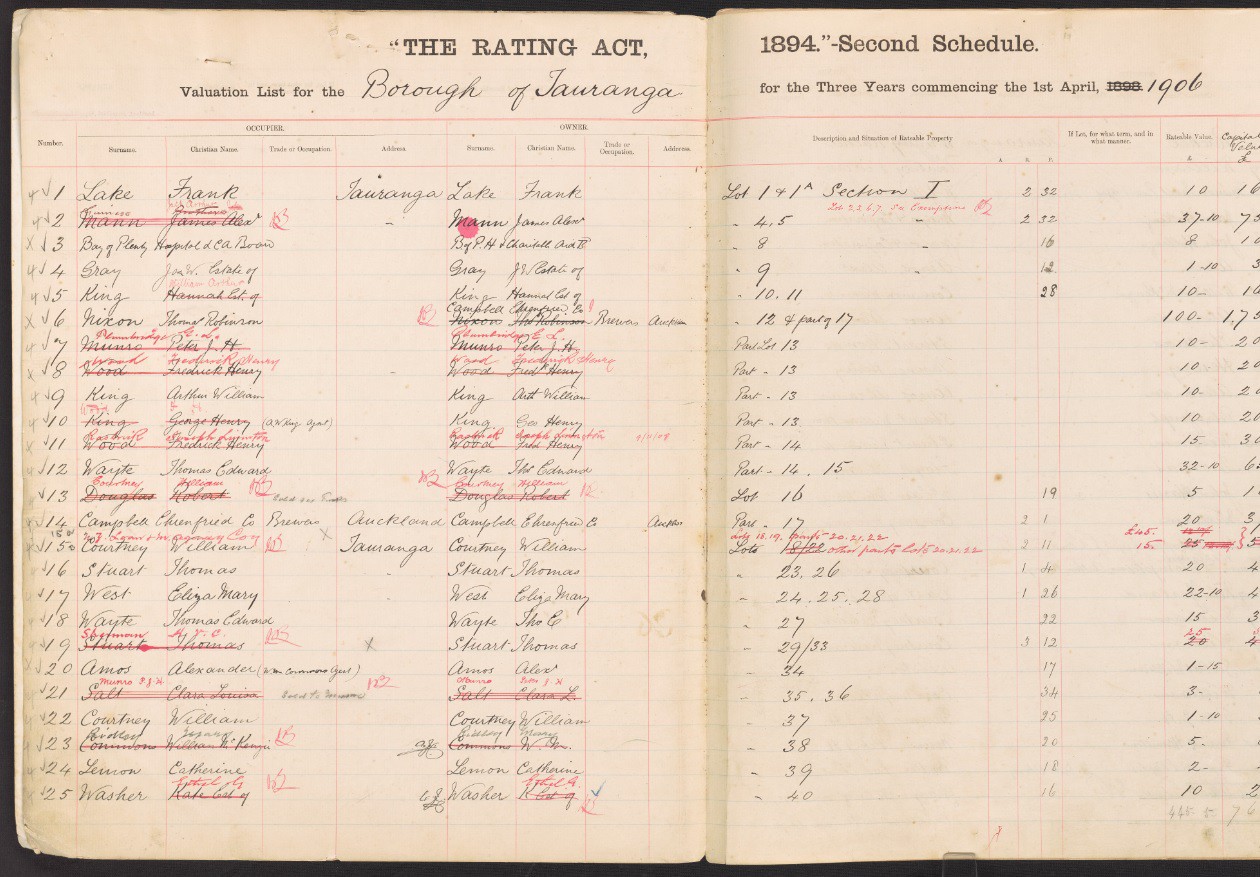 "THE RATING ACT, 1894."-Second Schedule.
Valuation List for the Borough of Tauranga for the Three Years commencing the 1st April, 1898 1906
OCCUPIER. OWNER.
Number. Surname. Christian Name. Trade or Occupation. Address. Surname. Christian Name. Trade or Occupation. Address. Description and Situation of Rateable Property If Let, for what term, and in what manner. Rateable Value. Capital
A. R. P. £ £
1 Lake Frank Tauranga Lake Frank Lot 1 & 1A Section I 2 32 10
Brothers
2 Mann James Alexr Mann James Alexr " 4, 5 2 32 37-10
3 Bay of Plenty Hospital & C A Board " 8 16 8
4 Gray Jas W. Estate of Gray J W Estate of " 9 12 1-10
William Arthur
5 King Hannah Est. of King Hannah Est of " 10. 11 28 10-
Campbell Ehrenfried Co
6 Nixon Thomas Robinson Nixon Thos Robinson Brewers " 12 & part of 17 100-
Plumbridge E. L. Plumbridge E. L.
7 Munro Peter J. H. Munro Peter J. H. Part Lot 13 10-
Wood Frederick Henry Wood Frederick Henry
8 Wood Fredrick Henry Wood Fredk Henry Part " 13 10
9 King Arthur William King Arth William Part " 13 10
Wood F H
10 King George Henry (A W King Agent) King Geo Henry Part " 13 10
Joseph Livingston Joseph Livingston 9/11/08
11 Wood Fredrick Henry Wood Fred Henry Part " 14 15
12 Wayte Thomas Edward Wayte Thos Edward Part " 14. 15 32-10
Courtney William Courtney William
13 Douglas Robert Douglas Robert Lot 16 19 5
14 Campbell Ehrenfried Co Brewers Auckland Campbell Ehrenfried Co Part " 17 2 1 20
N.Z. Loan & Mercantile Coy lots 18.19. parts 20.21.22 £45.
15 Courtney William Tauranga Courtney William Lots 18/22 other parts Lots 20.21.22 2 11 15. 25
16 Stuart Thomas Stuart Thomas " 23. 26 1 4 20
17 West Eliza Mary West Eliza Mary " 24. 25. 28 1 26 22-10
18 Wayte Thomas Edward Wayte Tho E " 27 22 15
Sherman H. V. C. 25
19 Stuart Thomas Stuart Thomas " 29/33 3 12 20
20 Amos Alexander (Wm Commons Agent) Amos Alexr " 34 17 1-15
Munro P J H Munro Peter J. H
21 Salt Clara Louisa Salt Clara L. " 35. 36 34 3-
22 Courtney William Courtney William " 37 25 1-10
23 Commons William McKenzie Commons W. Mc. " 38 20 5-
24 Lemon Catherine Lemon Catherine " 39 18 2-
25 Washer Kate Est of Washer K Est of " 40 16 10